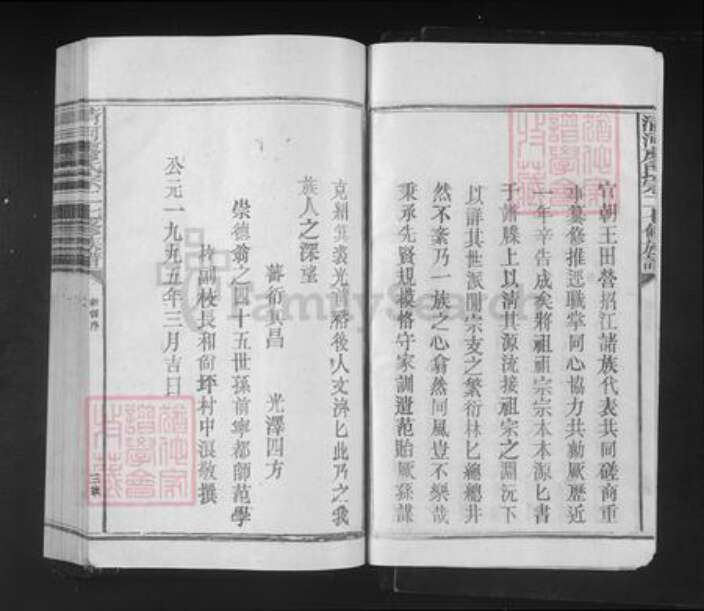 官朝王田營招江諸族代表共同磋商重
事纂修推选職掌同心協力共勷厥歷近
一年辛告成矣將祖祖宗宗本本源匕書
于諸牒上以清其源流接祖宗之淵沅下
以詳其世派開宗支之繁衍林匕總總井
然不紊乃一族之心翕然同風豈不樂哉
秉承先賢規模恪守家訓遺范貽厥孫謀
克紹箕裘光前裕後人文濟匕此乃之我
族人之深望
蕃衍其昌 光澤四方
崇德翁之四十五世孫前寧都師范學
校副校長和尙坪村中浪敬撰
公元一九九五年三月吉日
新譜序
三號
FamilySearch